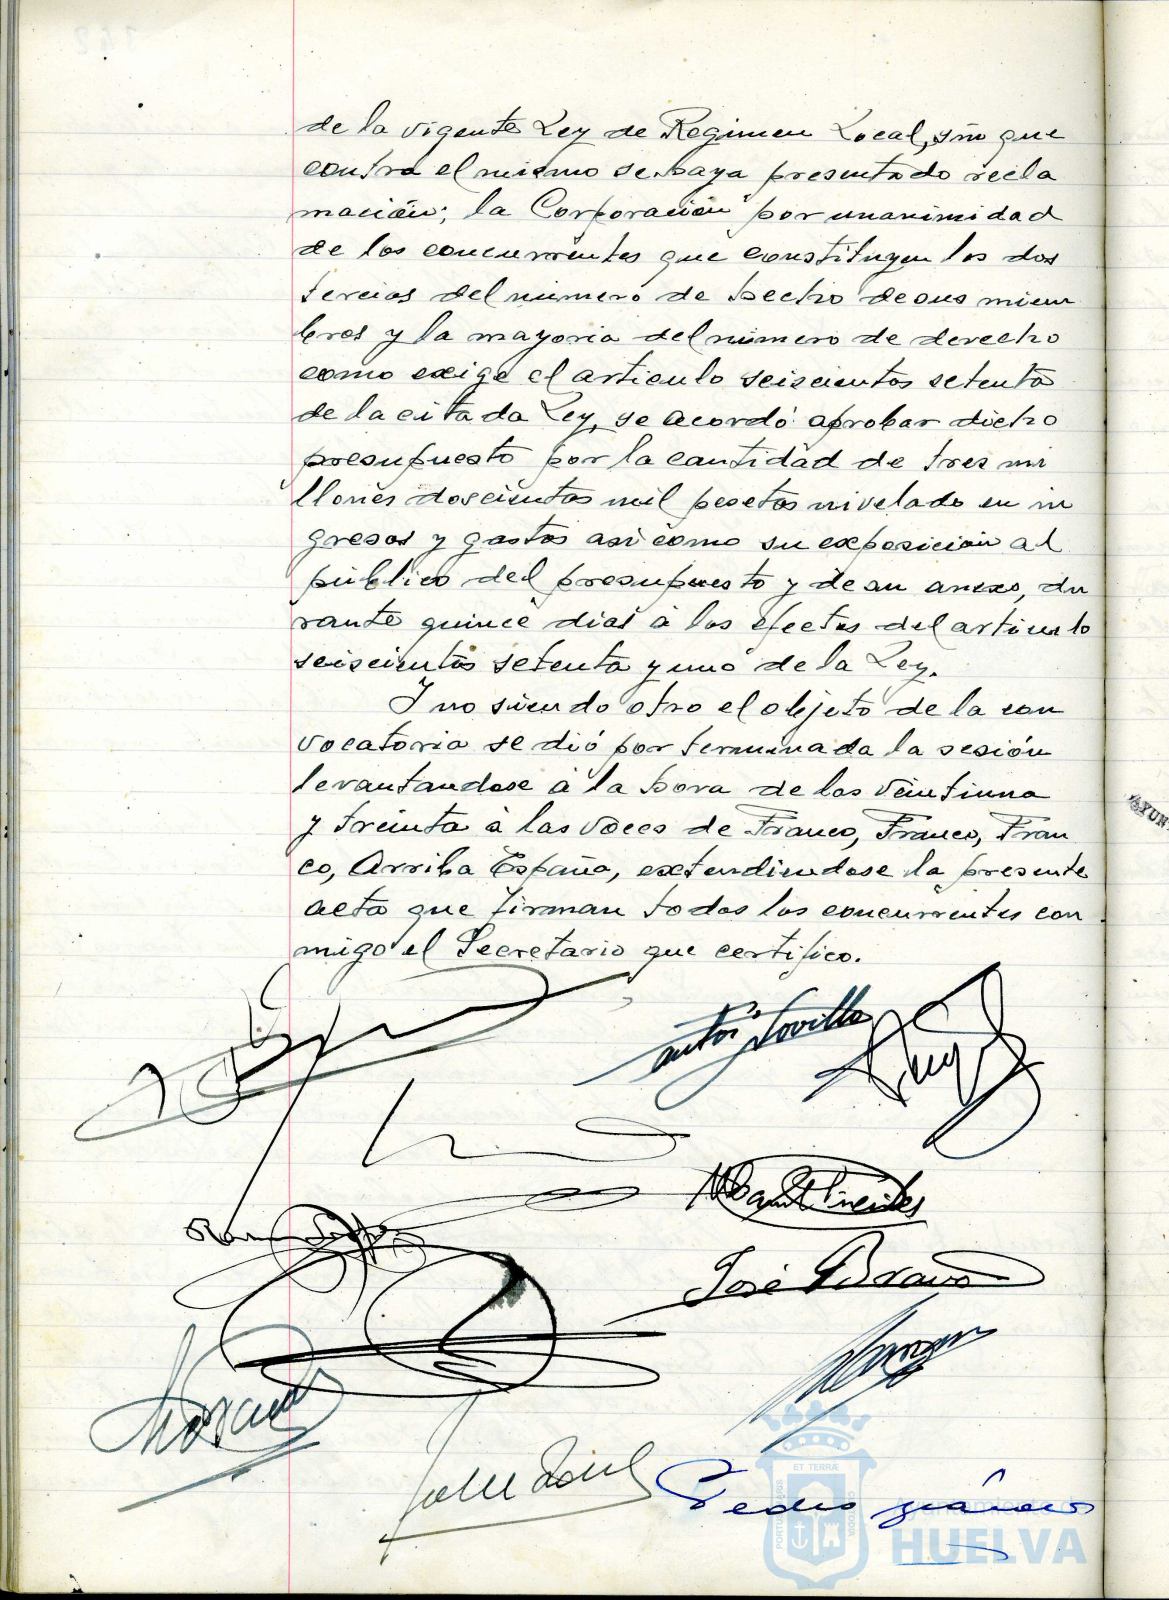 de la vigente Ley de Regimen Local, sin que
contra el mismo se haya presentado recla
mación; la Corporación por unanimidad
de los concurrentes que constituyen los dos
tercios del número de hecho de sus miem
bros y la mayoria del número de derecho
como exige el articulo seiscientos setenta
de la citada Ley, se acordó aprobar dicho
presupuesto por la cantidad de tres mi
llones doscientas mil pesetas nivelado en in
gresos y gastos asi como su exposición al
público del presupuesto y de su anexo, du
rante quince dias á los efectos del articulo
seiscientos setenta y uno de la Ley.
Y no siendo otro el objeto de la con
vocatoria se dió por terminada la sesión
levantandose á la hora de las veintiuna
y treinta á las voces de Franco, Franco, Fran
co, Arriba España, extendiendose la presente
acta que firman todos los concurrentes con
migo el Secretario que certifico.
José Bravo
Pedro
ET TERRÆ
Ayuntamiento de
HUELVA